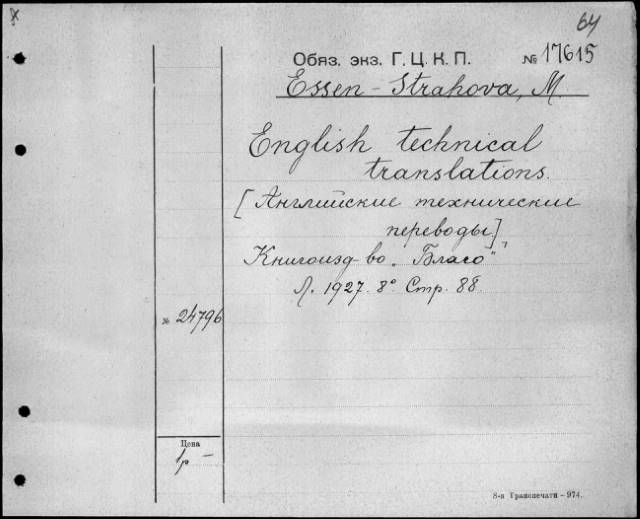 64
Обяз. экз. Г. Ц. К. П. № 17615
Essen-Strahova, M.
English technical
translations.
[Английские технические
переводы]
Книгоизд-во „Благо"
Л. 1927. 8° Стр. 88.
24796
Цена
1р —
8-я Транспечати—974.